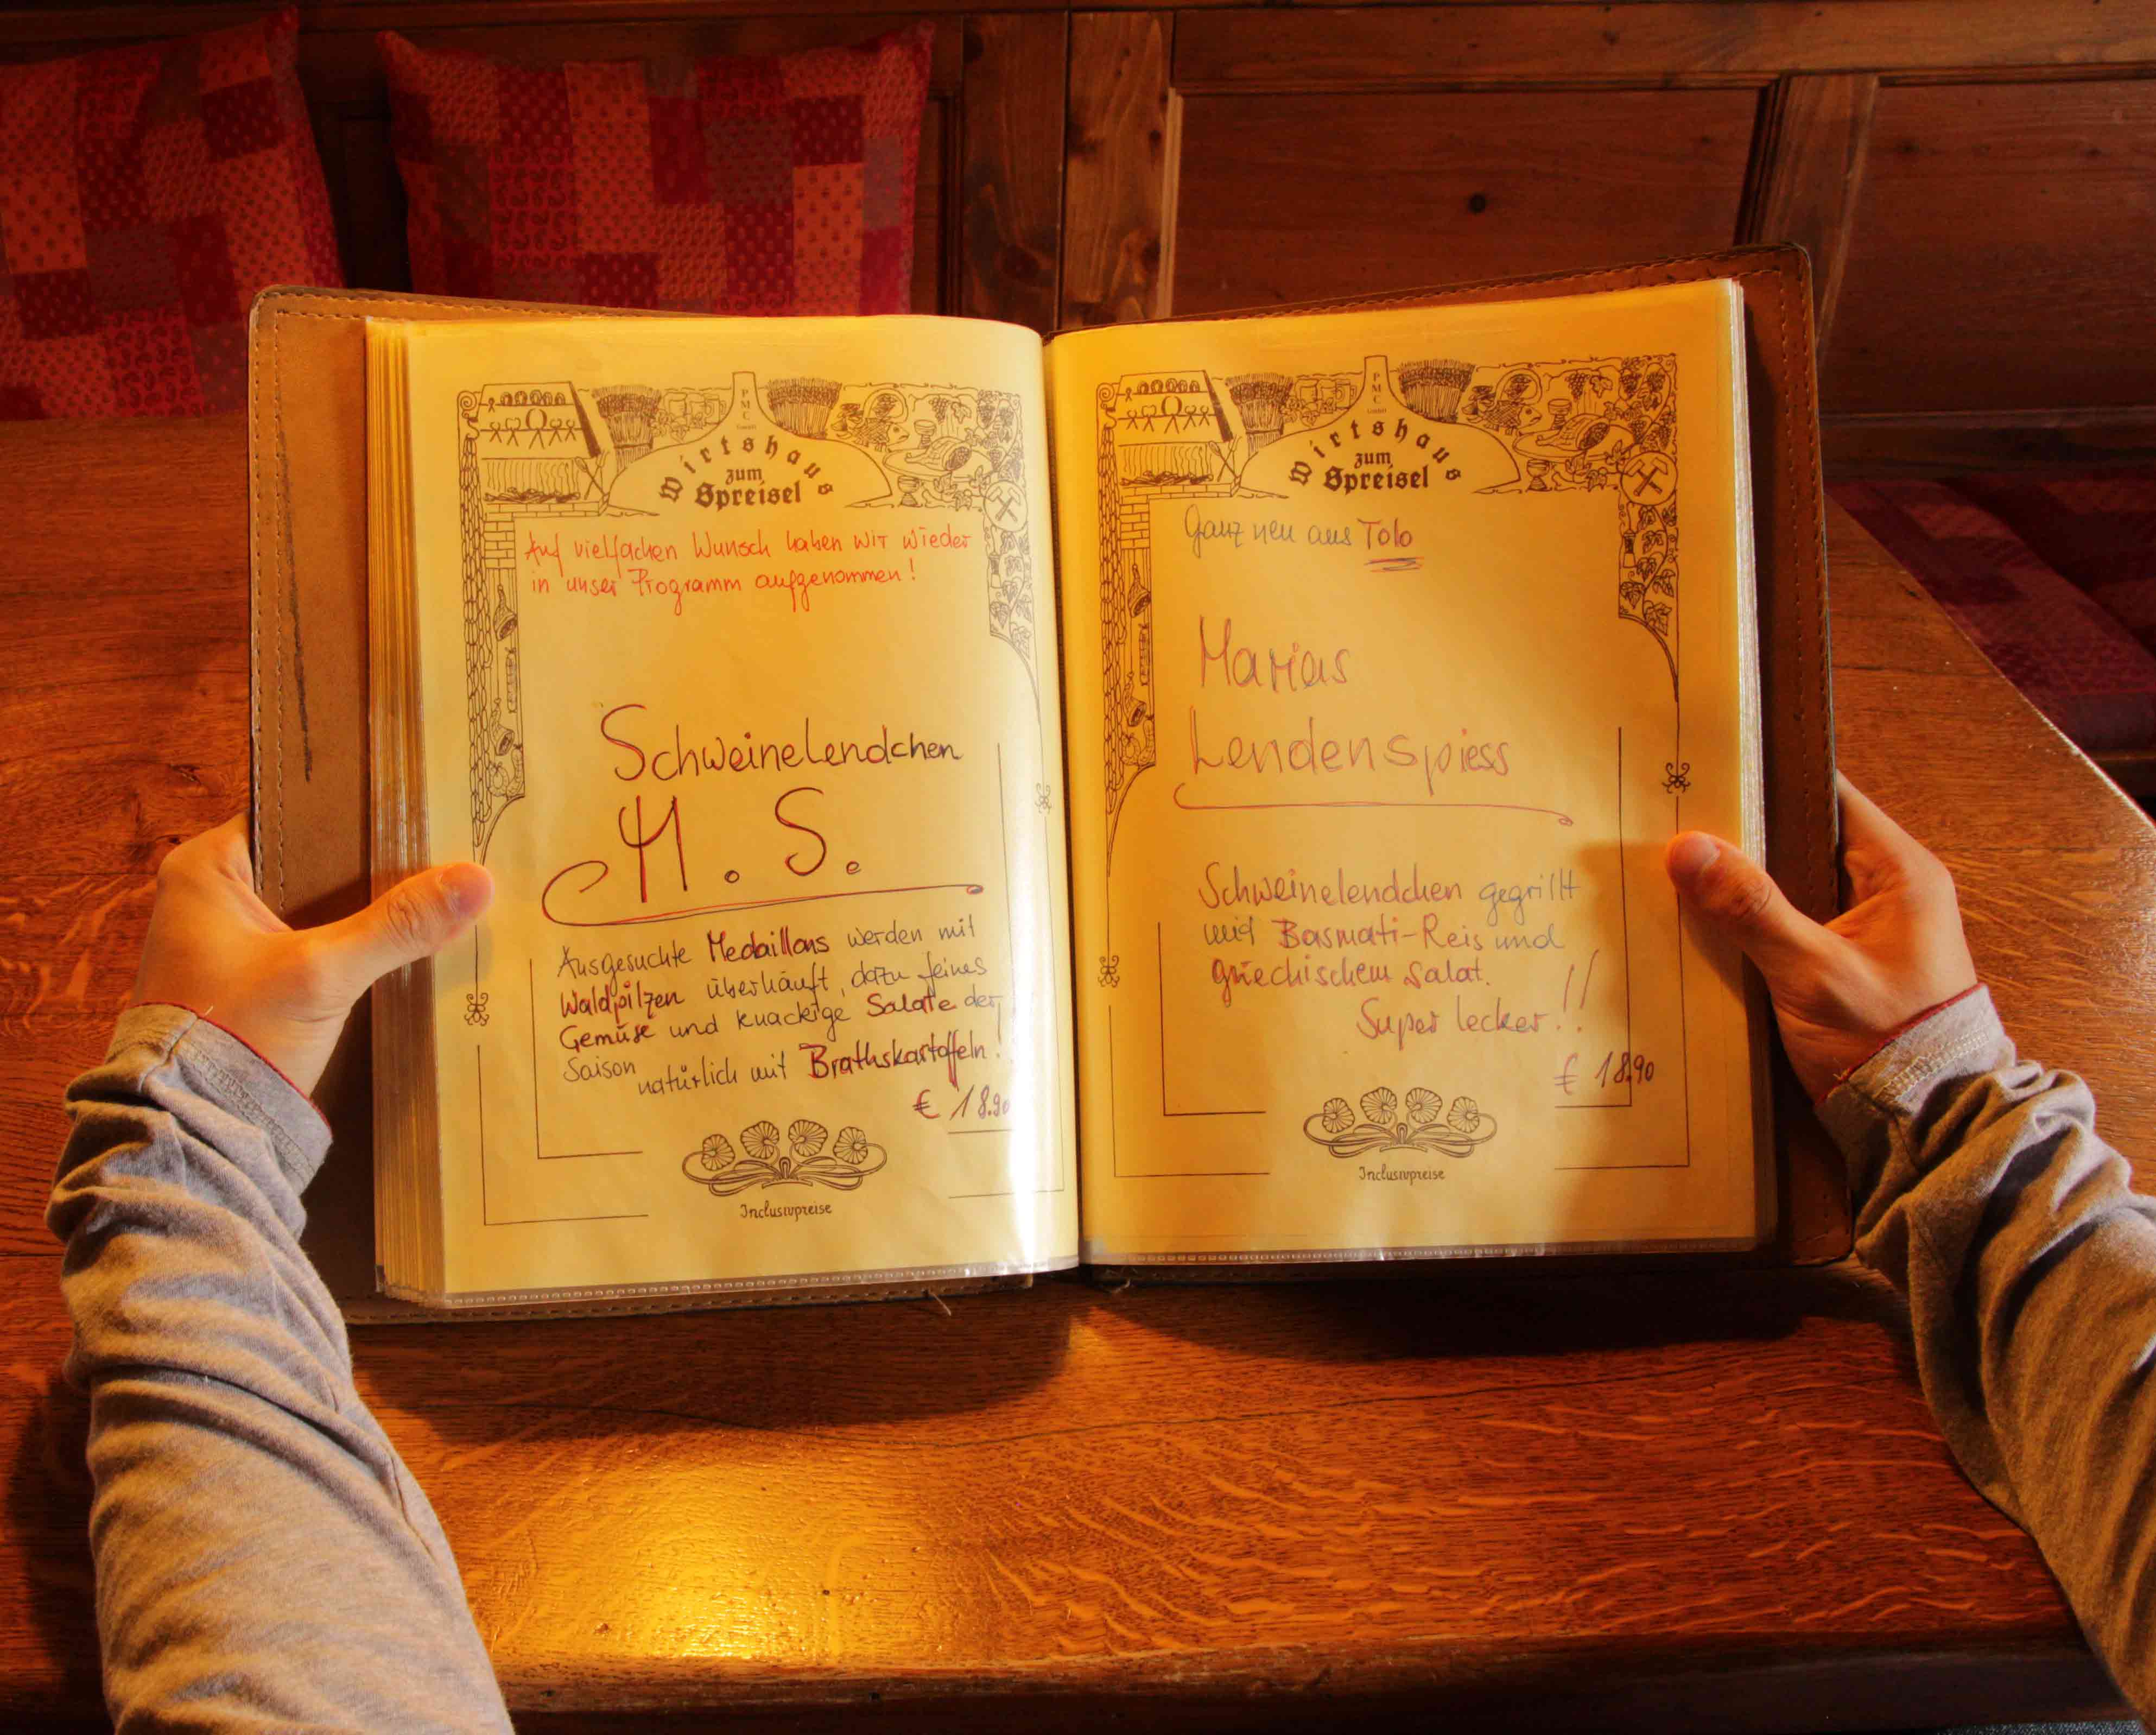 PMC
GmbH
Wirtshaus
zum
Spreisel
Auf vielfachen Wunsch haben wir wieder
in unser Programm aufgenommen!
Schweinelendchen
M. S.
Ausgesuchte Medaillons werden mit
Waldpilzen überhäuft, dazu feines
Gemüse und knackige Salate der
Saison natürlich mit Brathskartoffeln!
€ 18.90
Inclusivpreise
PMC
GmbH
Wirtshaus
zum
Spreisel
Ganz neu aus Tolo
Marias
Lendenspiess
Schweinelendchen gegrillt
mit Basmati-Reis und
griechischem Salat.
Super lecker!!
€ 18.90
Inclusivpreise